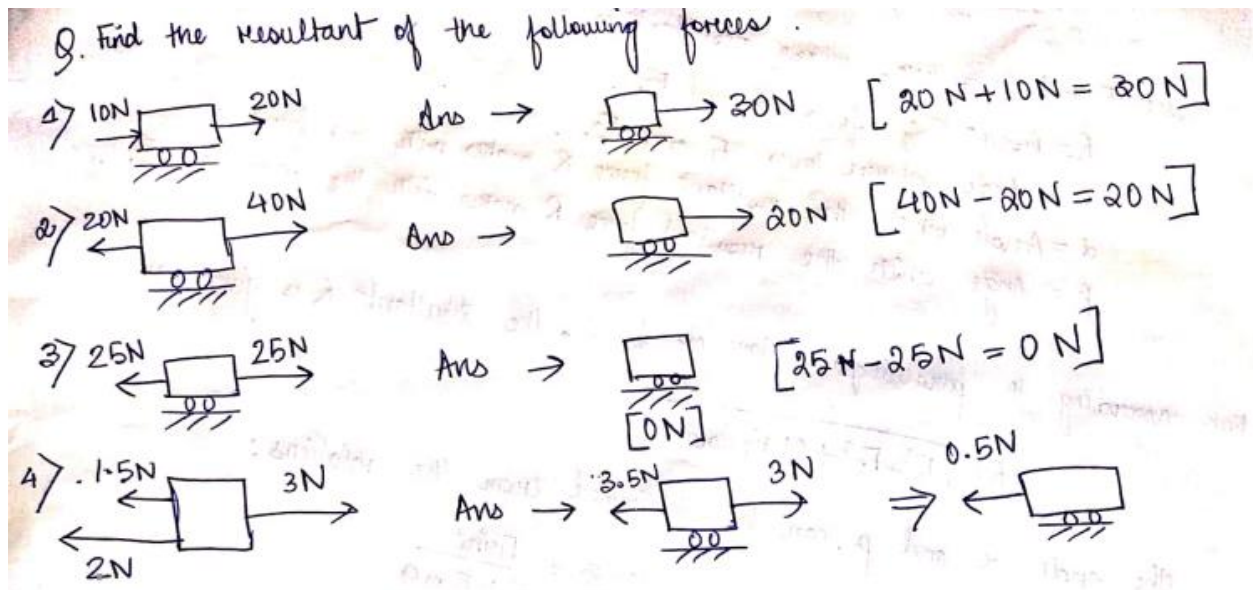 Q. Find the resultant of the following forces.
1) 10N 20N Ans → 30N [20N+10N = 30N]
2) 20N 40N Ans → 20N [40N-20N = 20N]
3) 25N 25N Ans → [25N-25N = 0N]
[0N]
4) 1.5N 3N Ans → 3.5N 3N ⇒ 0.5N
2N